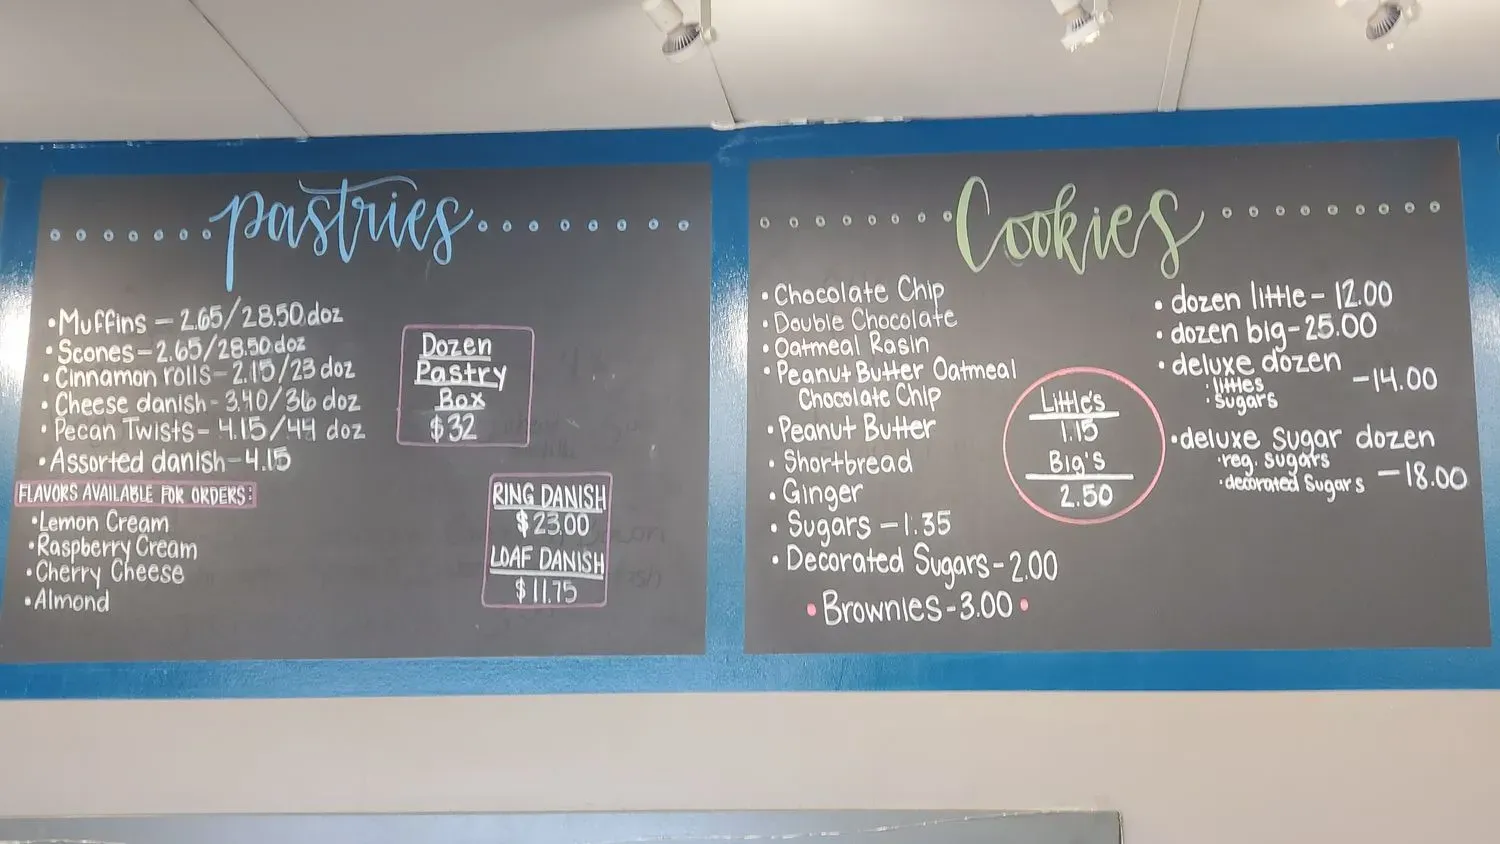 Pastries
• Muffins – 2.65/28.50 doz
• Scones – 2.65/28.50 doz
• Cinnamon rolls – 2.15/23 doz
• Cheese danish – 3.40/36 doz
• Pecan Twists – 4.15/44 doz
• Assorted danish – 4.15
FLAVORS AVAILABLE FOR ORDERS:
• Lemon Cream
• Raspberry Cream
• Cherry Cheese
• Almond
Dozen
Pastry
Box
$32
RING DANISH
$23.00
LOAF DANISH
$11.75
Cookies
• Chocolate Chip
• Double Chocolate
• Oatmeal Rasin
• Peanut Butter Oatmeal
Chocolate Chip
• Peanut Butter
• Shortbread
• Ginger
• Sugars – 1.35
• Decorated Sugars – 2.00
• Brownies – 3.00 •
Little's
1.15
Big's
2.50
• dozen little – 12.00
• dozen big – 25.00
• deluxe dozen
• littles
• sugars
– 14.00
• deluxe sugar dozen
• reg. sugars
• decorated sugars
– 18.00